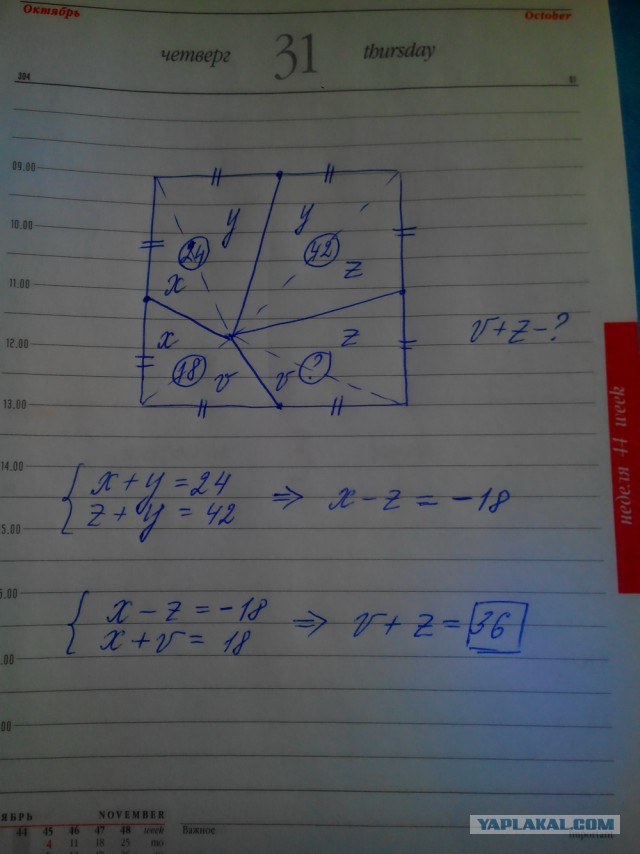 Октябрь October
четверг 31 thursday
304 61
09.00
10.00
11.00
12.00
13.00
14.00
5.00
.00
.00
00
y y
24 42
x z
x z
18 v v ?
v+z-?
неделя 44 week
x+y=24
z+y=42
⇒ x-z=-18
x-z=-18
x+v=18
⇒ v+z=36
ЯБРЬ NOVEMBER
44 45 46 47 48 week
4 11 18 25 mo
Важное important
YAPLAKAL.COM